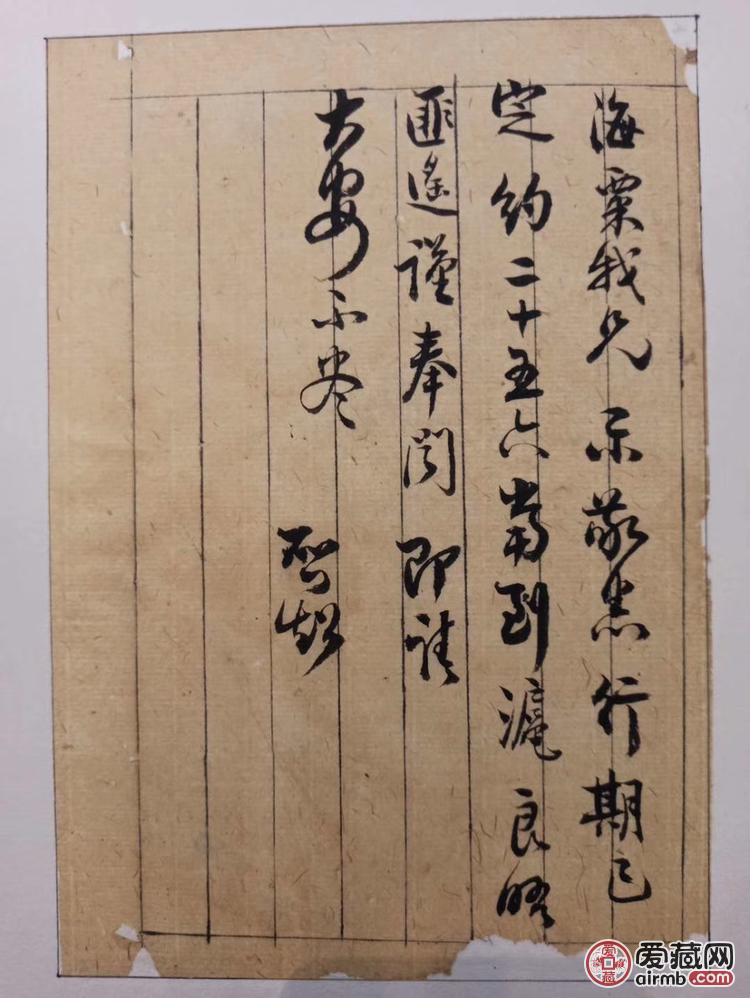 海粟我兄 示敬悉行期已
定约二十五六当到滬良晤
匪遥谨奉闻 即请
大安 不尽
启超
爱藏网
airmb.com